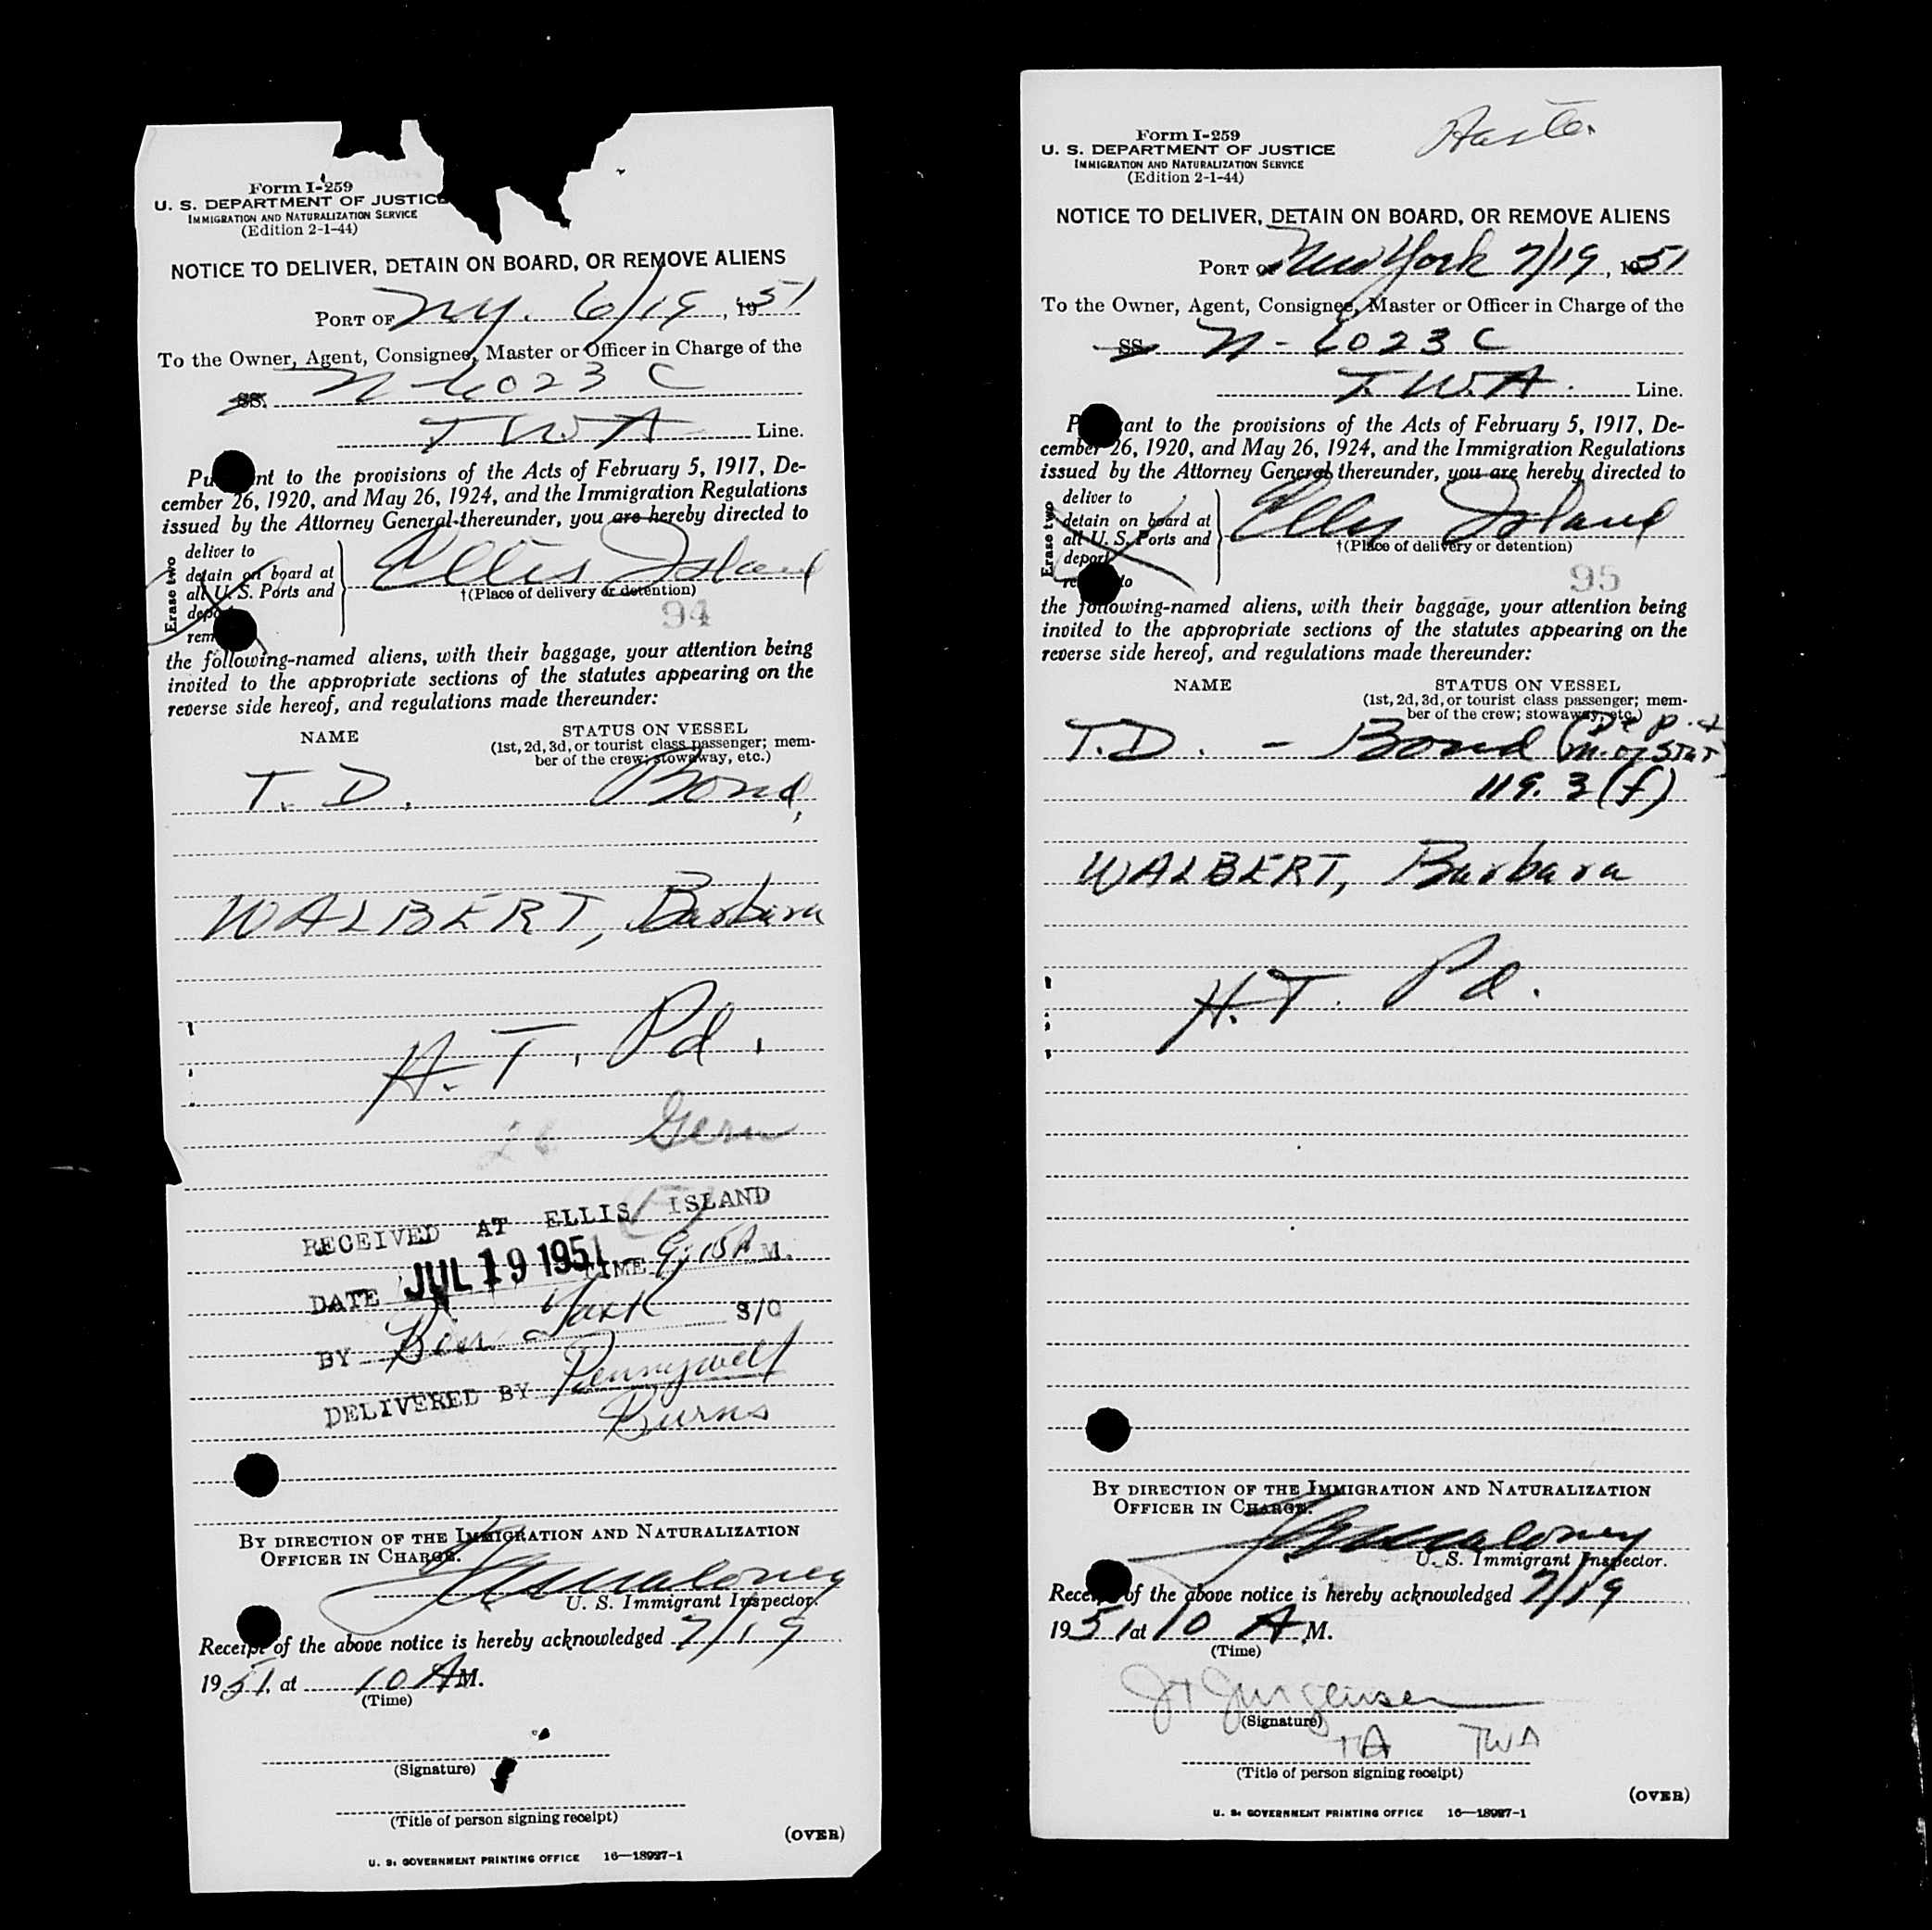 Form I-259
U. S. DEPARTMENT OF JUSTICE
IMMIGRATION AND NATURALIZATION SERVICE
(Edition 2-1-44)
NOTICE TO DELIVER, DETAIN ON BOARD, OR REMOVE ALIENS
PORT OF N.Y. 6/19, 1951
To the Owner, Agent, Consignee, Master or Officer in Charge of the
SS. N-6023 C
T W A Line.
Pu nt to the provisions of the Acts of February 5, 1917, De-
cember 26, 1920, and May 26, 1924, and the Immigration Regulations
issued by the Attorney General thereunder, you are hereby directed to
Erase two
deliver to
detain on board at
all U. S. Ports and
depo
rem
Ellis Island
†(Place of delivery or detention)
94
the following-named aliens, with their baggage, your attention being
invited to the appropriate sections of the statutes appearing on the
reverse side hereof, and regulations made thereunder:
NAME
STATUS ON VESSEL
(1st, 2d, 3d, or tourist class passenger; mem-
ber of the crew; stowaway, etc.)
T. D. Bond,
WALBERT, Barbara
H. T. Pd.
26 Germ
RECEIVED AT ELLIS ISLAND
DATE JUL 19 1951 TIME 9:15 A M.
BY Ben S/O
DELIVERED BY Pennywell
Burns
BY DIRECTION OF THE IMMIGRATION AND NATURALIZATION
OFFICER IN CHARGE.
Maloney
U. S. Immigrant Inspector.
Receipt of the above notice is hereby acknowledged 7/19
1951, at 10 A M.
(Time)
(Signature)
(Title of person signing receipt)
(OVER)
U. S. GOVERNMENT PRINTING OFFICE 16—18927-1
Form I-259
U. S. DEPARTMENT OF JUSTICE
IMMIGRATION AND NATURALIZATION SERVICE
(Edition 2-1-44)
NOTICE TO DELIVER, DETAIN ON BOARD, OR REMOVE ALIENS
PORT OF New York 7/19, 1951
To the Owner, Agent, Consignee, Master or Officer in Charge of the
SS. N-6023 C
T.W.A. Line.
P ant to the provisions of the Acts of February 5, 1917, De-
cember 26, 1920, and May 26, 1924, and the Immigration Regulations
issued by the Attorney General thereunder, you are hereby directed to
Erase two
deliver to
detain on board at
all U. S. Ports and
deport
re to
Ellis Island
†(Place of delivery or detention)
95
the following-named aliens, with their baggage, your attention being
invited to the appropriate sections of the statutes appearing on the
reverse side hereof, and regulations made thereunder:
NAME
STATUS ON VESSEL
(1st, 2d, 3d, or tourist class passenger; mem-
ber of the crew; stowaway, etc.)
T.D. - Bond (Dep. t
119. 3(f)
WALBERT, Barbara
H. T. Pd.
BY DIRECTION OF THE IMMIGRATION AND NATURALIZATION
OFFICER IN CHARGE.
Maloney
U. S. Immigrant Inspector.
Rece of the above notice is hereby acknowledged 7/19
1951 at 10 A.M.
(Time)
J T Jurgensen
(Signature)
TA TWA
(Title of person signing receipt)
(OVER)
U. S. GOVERNMENT PRINTING OFFICE 16—18927-1